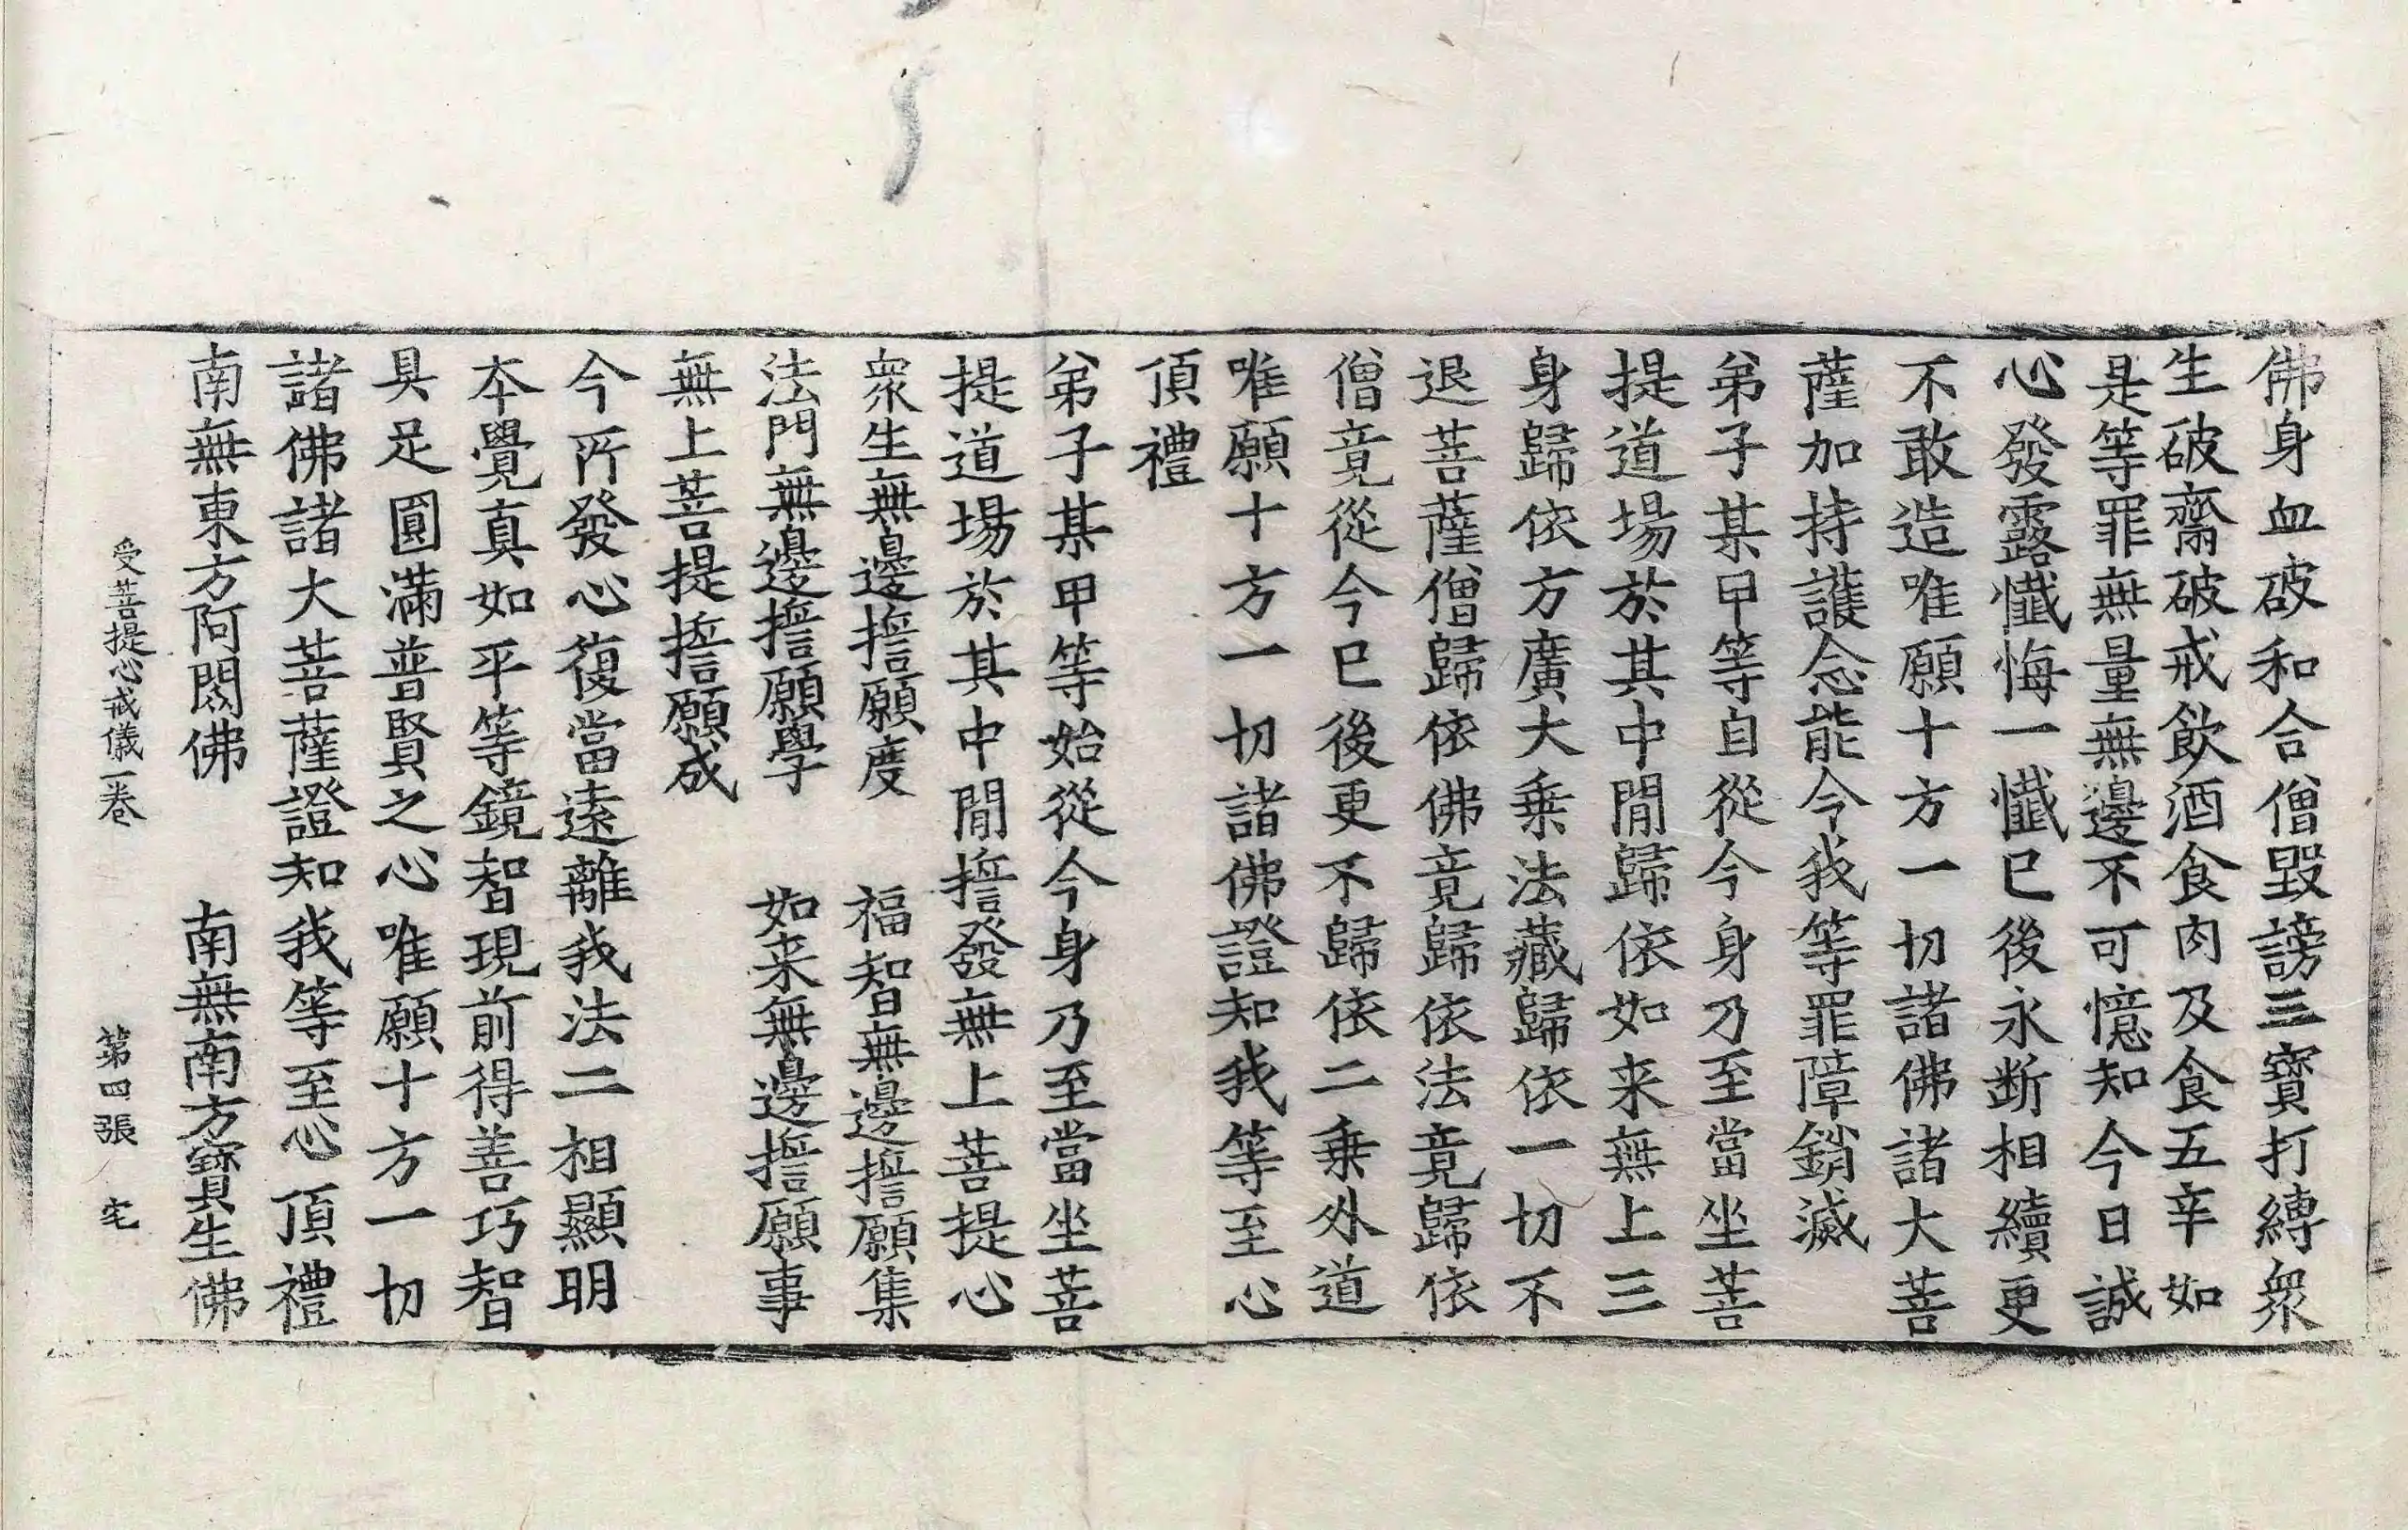 佛身血破和合僧毀謗三寶打縛衆
生破齋破戒飲酒食肉及食五辛如
是等罪無量無邊不可憶知今日誠
心發露懺悔一懺已後永斷相續更
不敢造唯願十方一切諸佛諸大菩
薩加持護念能令我等罪障銷滅
弟子某甲等自從今身乃至當坐菩
提道場於其中閒歸依如来無上三
身歸依方廣大乗法藏歸依一切不
退菩薩僧歸依佛竟歸依法竟歸依
僧竟從今已後更不歸依二乗外道
唯願十方一切諸佛證知我等至心
頂禮
弟子某甲等始從今身乃至當坐菩
提道場於其中閒誓發無上菩提心
衆生無邊誓願度 福智無邊誓願集
法門無邊誓願學 如来無邊誓願事
無上菩提誓願成
今所發心復當遠離我法二相顯明
本覺真如平等鏡智現前得善巧智
具足圓滿普賢之心唯願十方一切
諸佛諸大菩薩證知我等至心頂禮
南無東方阿閦佛 南無南方寶生佛
受菩提心戒儀一卷 第四張 宅